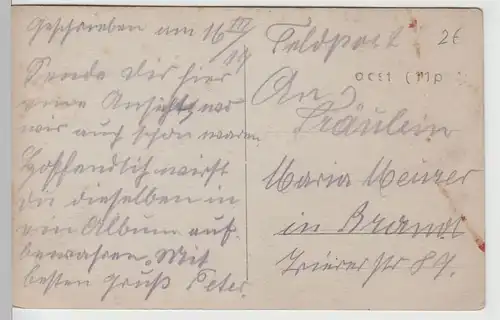 Geschrieben am 16/III 17
Sende dir hier
eine Ansicht wo
wir auch schon waren.
Hoffendlich wirst
du dieselben in
ein Album auf-
bewahren. Mit
besten Gruß Peter.
Feldpost
2€
An
Fräulein
Maria Meurer
in Brand
Triererstr 89.